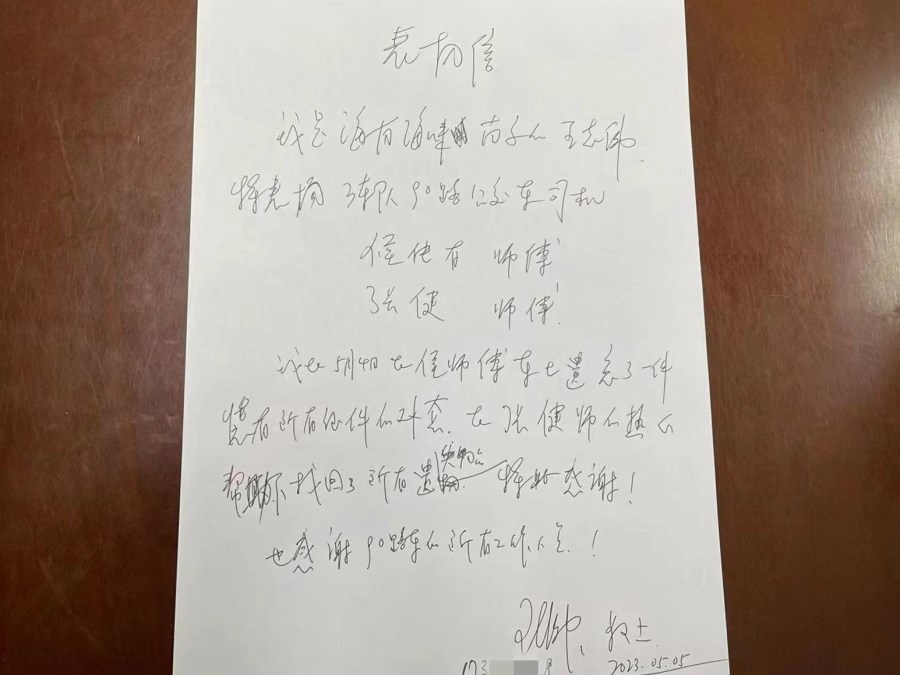 表扬信
我是海
特表扬 3车队90路公交车司机
侯使有 师傅
张健 师傅
我在5月4日在侯师傅车上遗忘了一件
装有所有证件的外套.在张健师的热心
帮助下找回了所有遗失物品 特此感谢!
也感谢90路车的所有工作人员.!
敬上
2023.05.05